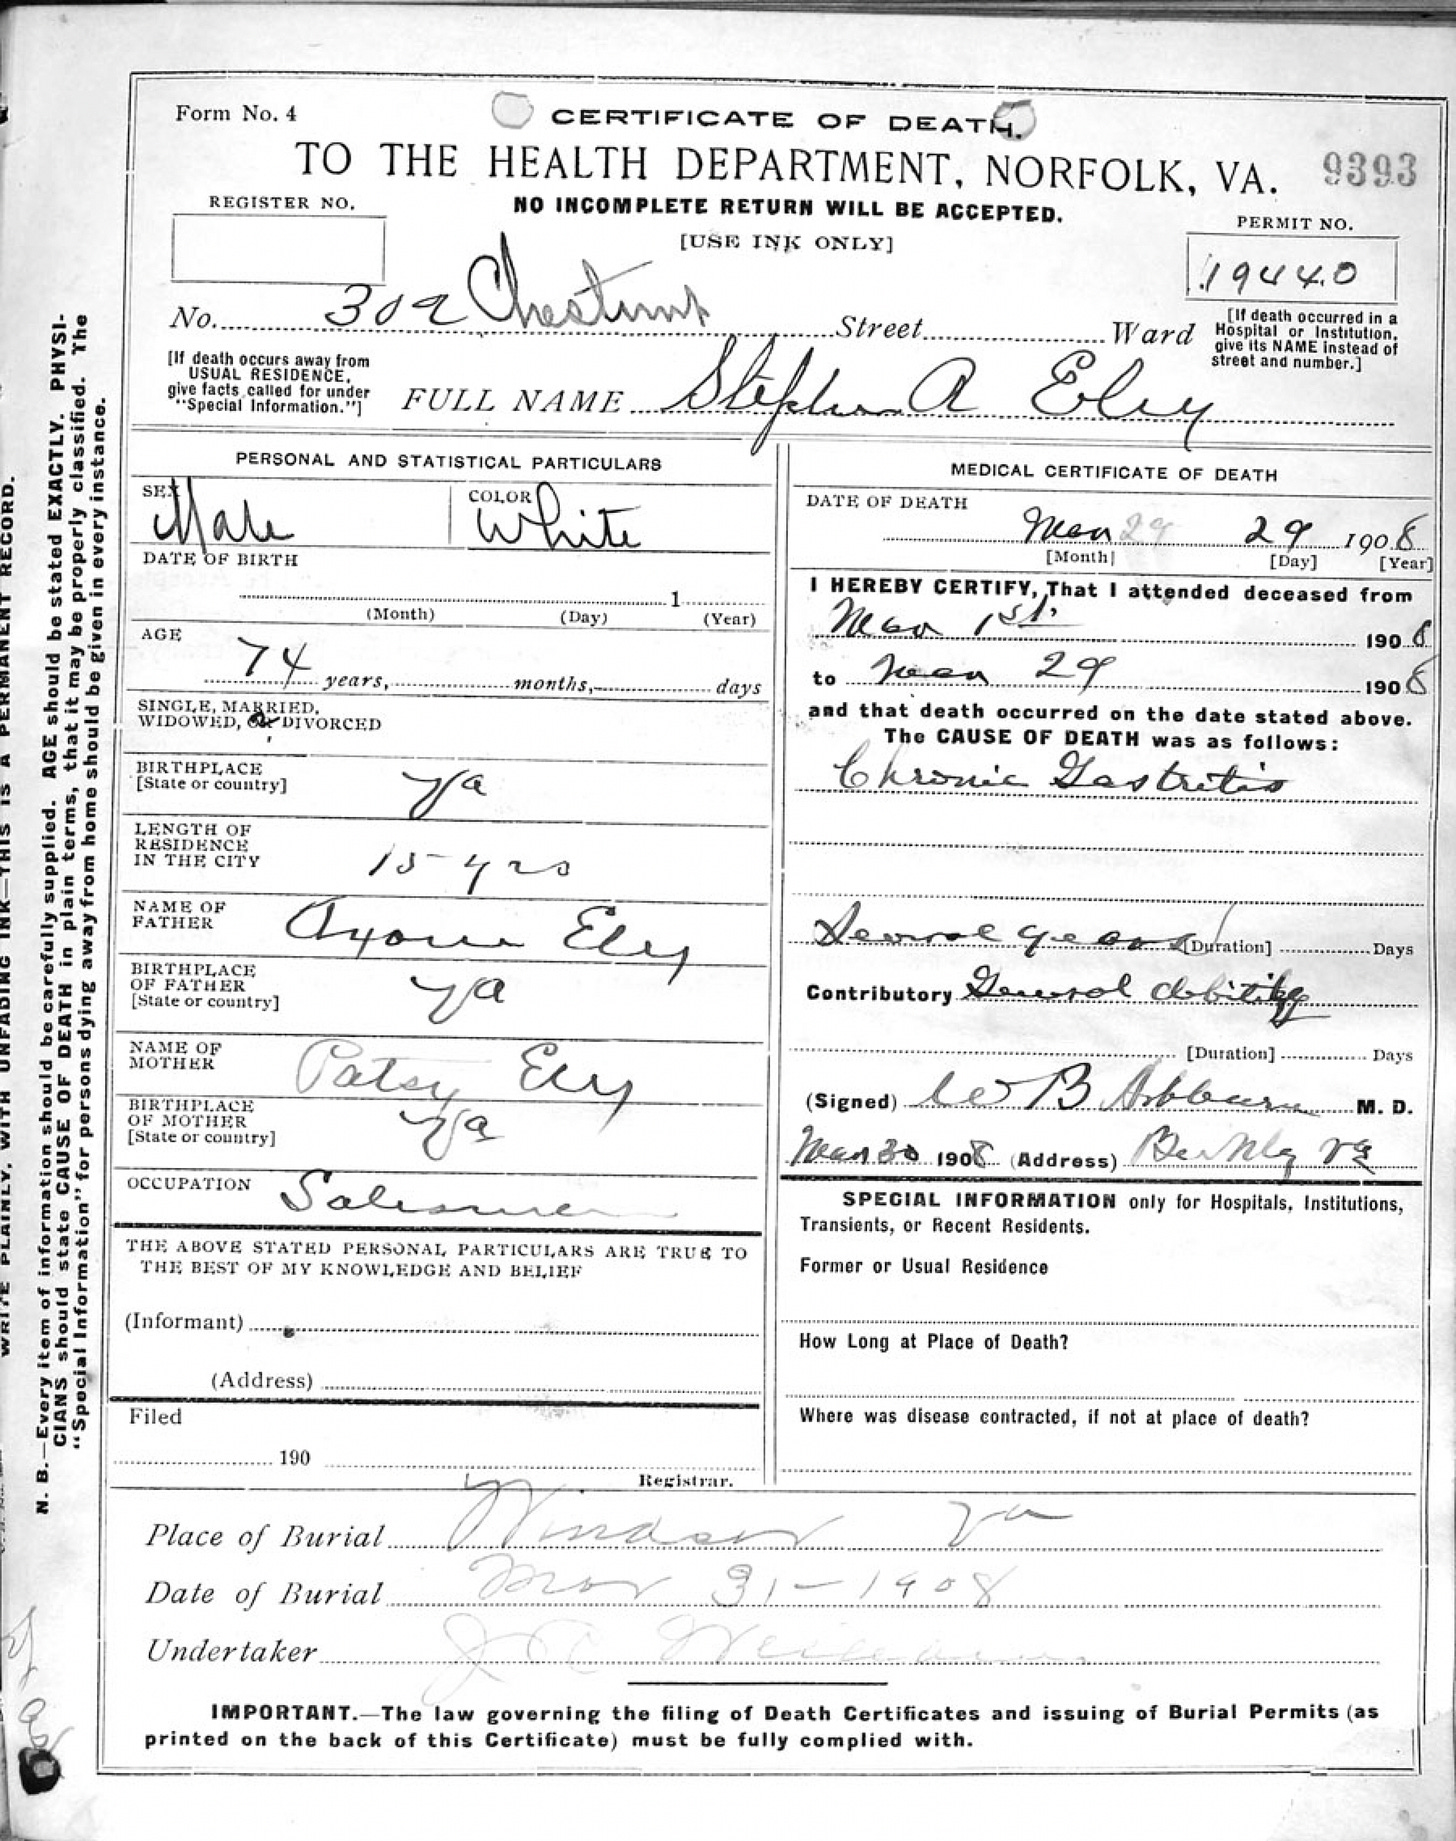 Form No. 4
CERTIFICATE OF DEATH.
TO THE HEALTH DEPARTMENT, NORFOLK, VA. 9393
REGISTER NO.
NO INCOMPLETE RETURN WILL BE ACCEPTED.
[USE INK ONLY]
PERMIT NO.
19440
No. 302 Chestnut Street Ward
[If death occurred in a
Hospital or Institution,
give its NAME instead of
street and number.]
[If death occurs away from
USUAL RESIDENCE,
give facts called for under
"Special Information."]
FULL NAME Stephen A Eley
PERSONAL AND STATISTICAL PARTICULARS
SEX Male
COLOR White
DATE OF BIRTH
1
(Month) (Day) (Year)
AGE
74 years, months, days
SINGLE, MARRIED,
WIDOWED, OR DIVORCED
BIRTHPLACE
[State or country] Va
LENGTH OF
RESIDENCE
IN THE CITY 15 yrs
NAME OF
FATHER Eley
BIRTHPLACE
OF FATHER
[State or country] Va
NAME OF
MOTHER Patsy Eley
BIRTHPLACE
OF MOTHER
[State or country] Va
OCCUPATION Salesman
THE ABOVE STATED PERSONAL PARTICULARS ARE TRUE TO
THE BEST OF MY KNOWLEDGE AND BELIEF
(Informant)
(Address)
Filed
190
Registrar.
MEDICAL CERTIFICATE OF DEATH
DATE OF DEATH
Mar 29 29 1908
[Month] [Day] [Year]
I HEREBY CERTIFY, That I attended deceased from
Mar 1st. 1908
to Mar 29 1908
and that death occurred on the date stated above.
The CAUSE OF DEATH was as follows:
Chronic Gastritis
Several years [Duration] Days
Contributory General debility
[Duration] Days
(Signed) W B Ashburn M. D.
Mar 30 1908 (Address) Berkley Va
SPECIAL INFORMATION only for Hospitals, Institutions,
Transients, or Recent Residents.
Former or Usual Residence
How Long at Place of Death?
Where was disease contracted, if not at place of death?
Place of Burial Windsor Va
Date of Burial Mar 31-1908
Undertaker J
IMPORTANT.—The law governing the filing of Death Certificates and issuing of Burial Permits (as
printed on the back of this Certificate) must be fully complied with.
WRITE PLAINLY, WITH UNFADING INK—THIS IS A PERMANENT RECORD.
N. B.—Every item of information should be carefully supplied. AGE should be stated EXACTLY. PHYSI-
CIANS should state CAUSE OF DEATH in plain terms, that it may be properly classified. The
"Special Information" for persons dying away from home should be given in every instance.